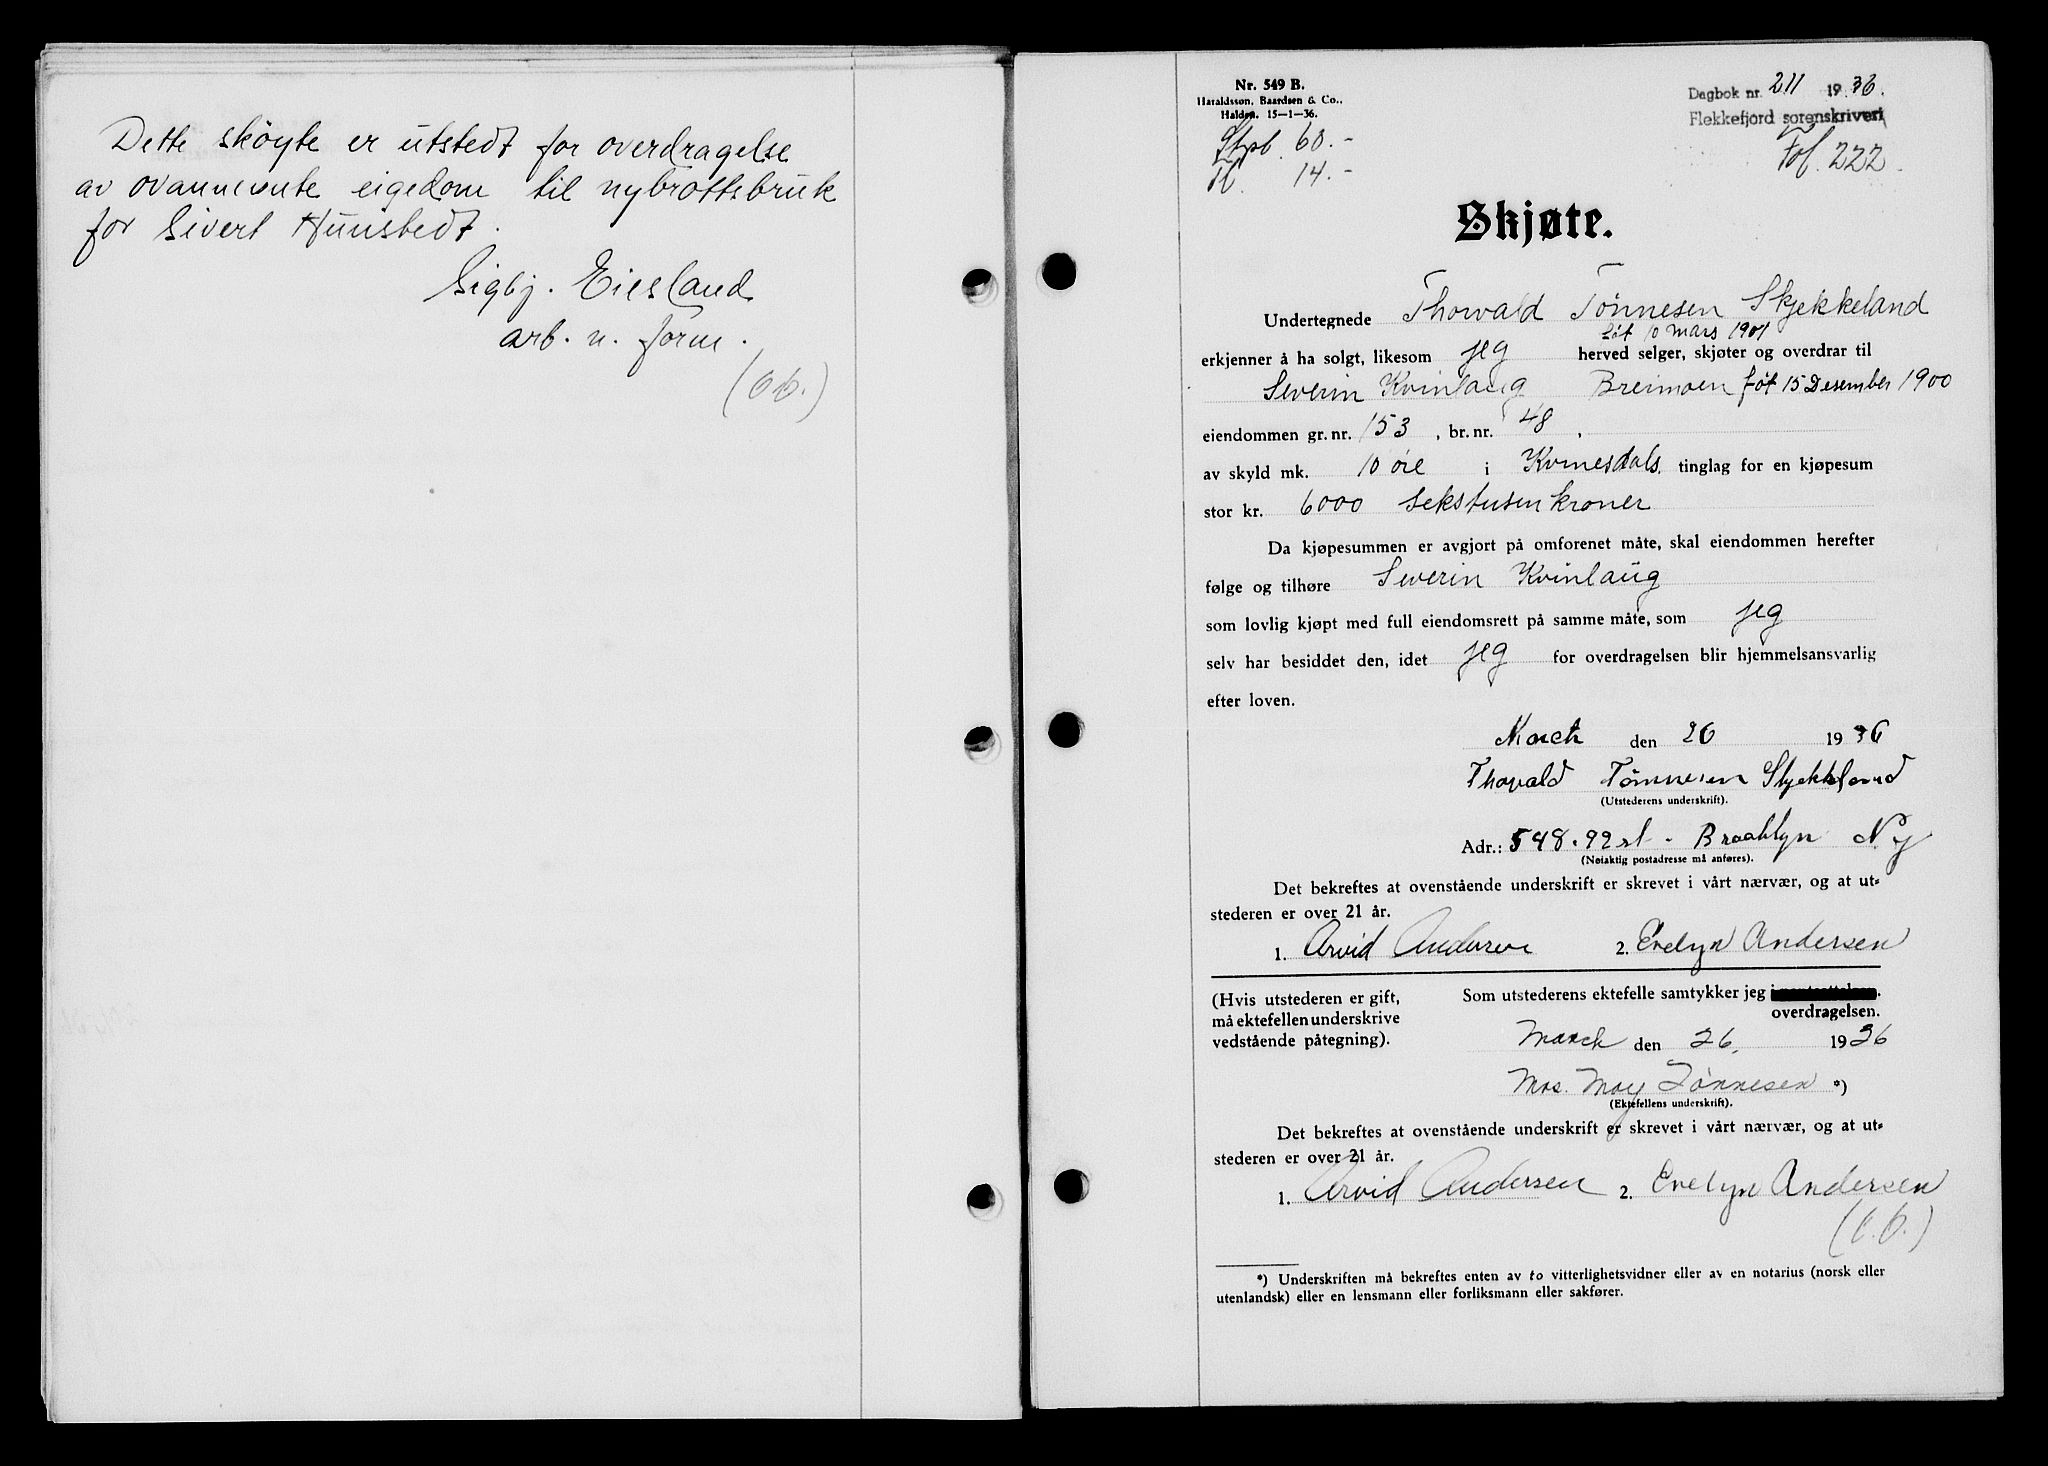 Dette skøyte er utstedt for overdragelse
av ovannemnte eigedom til nybrottsbruk
for Sivert Hunstedt.
Sigbj. Eiesland
arb. n. form.
Nr. 549 B.
Haraldssøn, Baardsen & Co.,
Halden. 15-1-36.
Dagbok nr. 211 1936.
Flekkefjord sorenskriveri
Stpb. 60.-
Tl. 14.-
Fol. 222.
Skjøte.
Undertegnede Thorvald Tønnesen Skjekkeland
føt 10 mars 1901
erkjenner å ha solgt, likesom jeg herved selger, skjøter og overdrar til
Severin Kvinlaug Breimoen føt 15 Desember 1900
eiendommen gr. nr. 153, br. nr. 48,
av skyld mk. 10 øre i Kvinesdals tinglag for en kjøpesum
stor kr. 6000 sekstusen kroner
Da kjøpesummen er avgjort på omforenet måte, skal eiendommen herefter
følge og tilhøre Severin Kvinlaug
som lovlig kjøpt med full eiendomsrett på samme måte, som jeg
selv har besiddet den, idet jeg for overdragelsen blir hjemmelsansvarlig
efter loven.
March den 26 1936
Thorvald Tønnesen Skjekkeland
(Utstederens underskrift).
Adr.: 548.92 st. Brooklyn N.y
(Nøiaktig postadresse må anføres).
Det bekreftes at ovenstående underskrift er skrevet i vårt nærvær, og at ut-
stederen er over 21 år.
1. Arvid Andersen 2. Evelyn Andersen
(Hvis utstederen er gift,
må ektefellen underskrive
vedstående påtegning).
Som utstederens ektefelle samtykker jeg i
overdragelsen.
March den 26, 1936
Mrs. May Tønnesen *)
(Ektefellens underskrift).
Det bekreftes at ovenstående underskrift er skrevet i vårt nærvær, og at ut-
stederen er over 21 år.
1. Arvid Andersen 2. Evelyn Andersen
*) Underskriften må bekreftes enten av to vitterlighetsvidner eller av en notarius (norsk eller
utenlandsk) eller en lensmann eller forliksmann eller sakfører.